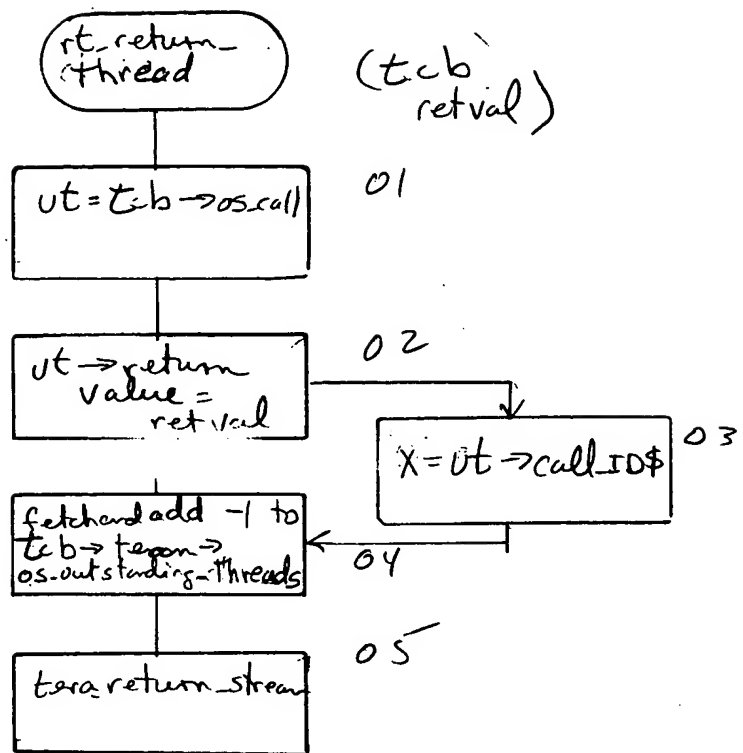 rt_return_
thread
(tcb
retval)
ut = tcb → os_call
01
ut → return
value =
retval
02
X = ut → call_ID$
03
fetch and add -1 to
tcb → team →
os_outstanding_threads
04
tera_return_stream
05